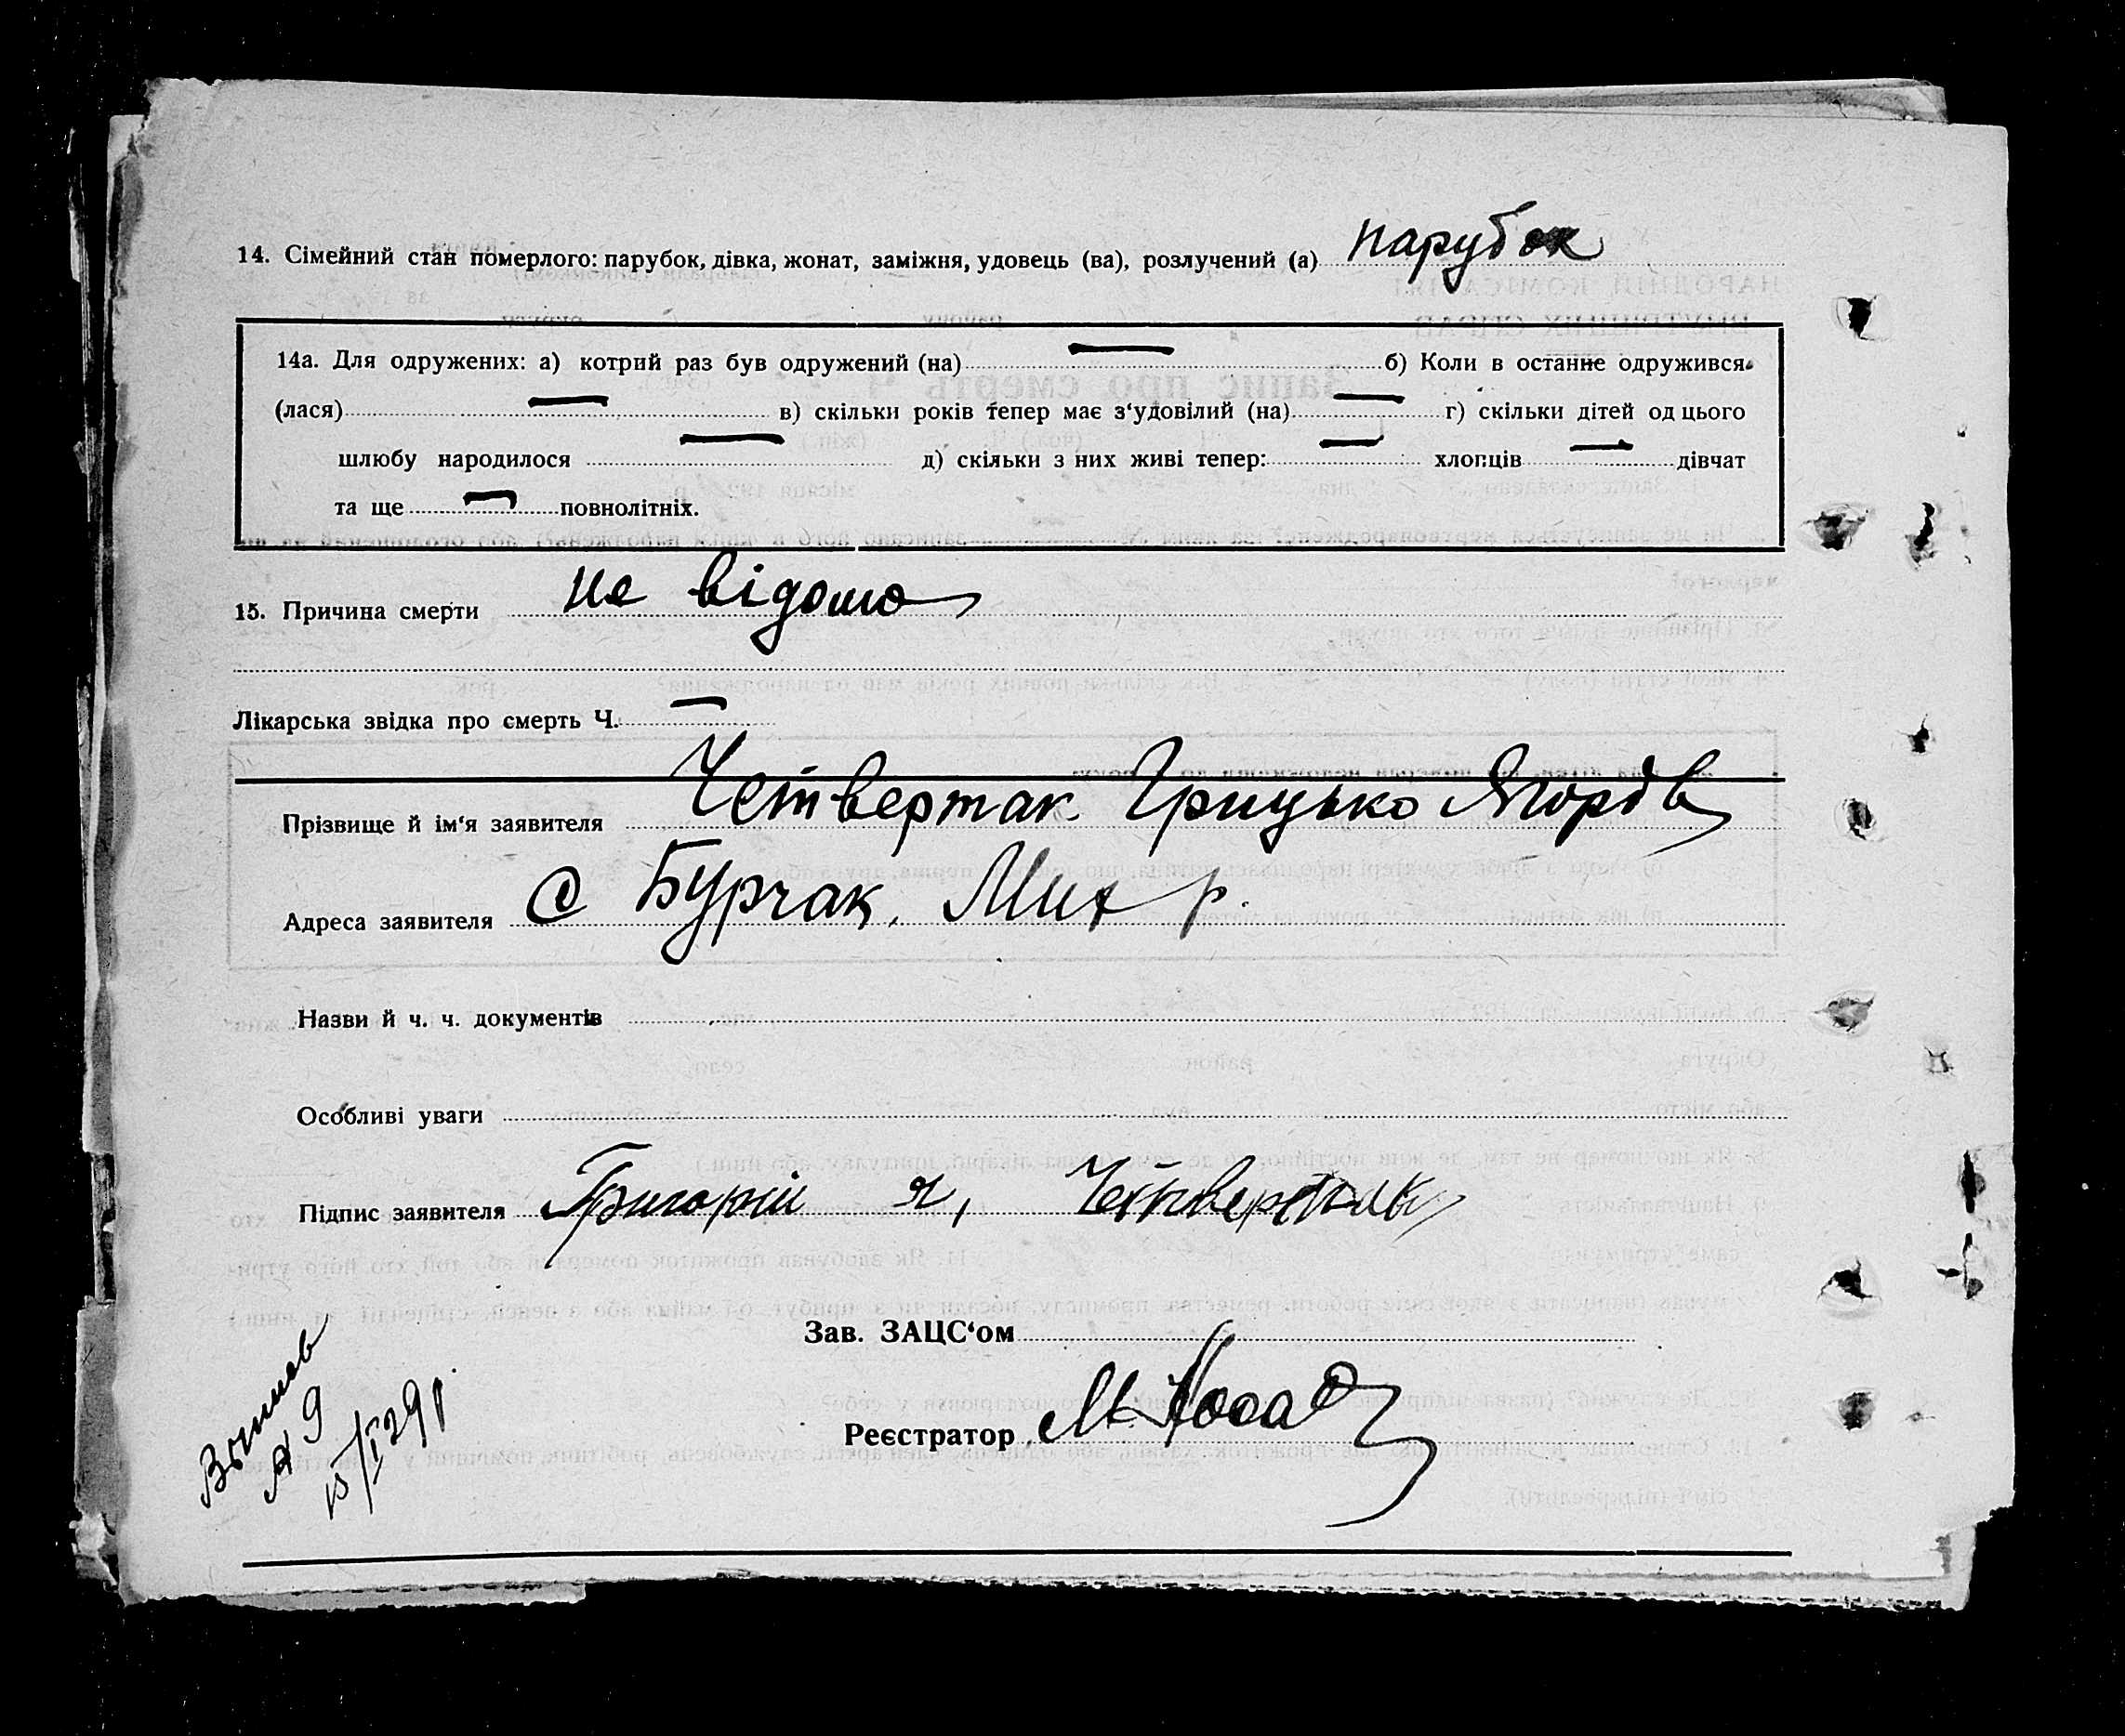 14. Сімейний стан померлого: парубок, дівка, жонат, заміжня, удовець (ва), розлучений (а) парубок
14а. Для одружених: а) котрий раз був одружений (на) — б) Коли в останнє одружився-
(лася) — в) скільки років тепер має з‘удовілий (на) — г) скільки дітей од цього
шлюбу народилося — д) скільки з них живі тепер: — хлопців — дівчат
та ще — повнолітніх.
15. Причина смерти не відома
Лікарська звідка про смерть Ч. —
Прізвище й ім‘я заявителя Четвертак Грицько
Адреса заявителя с Бурчак, Мих р.
Назви й ч. ч. документів
Особливі уваги
Підпис заявителя Григорій Я, Четвертак
Зав. ЗАЦС‘ом
Реєстратор М.
А 9
15/I 29р.